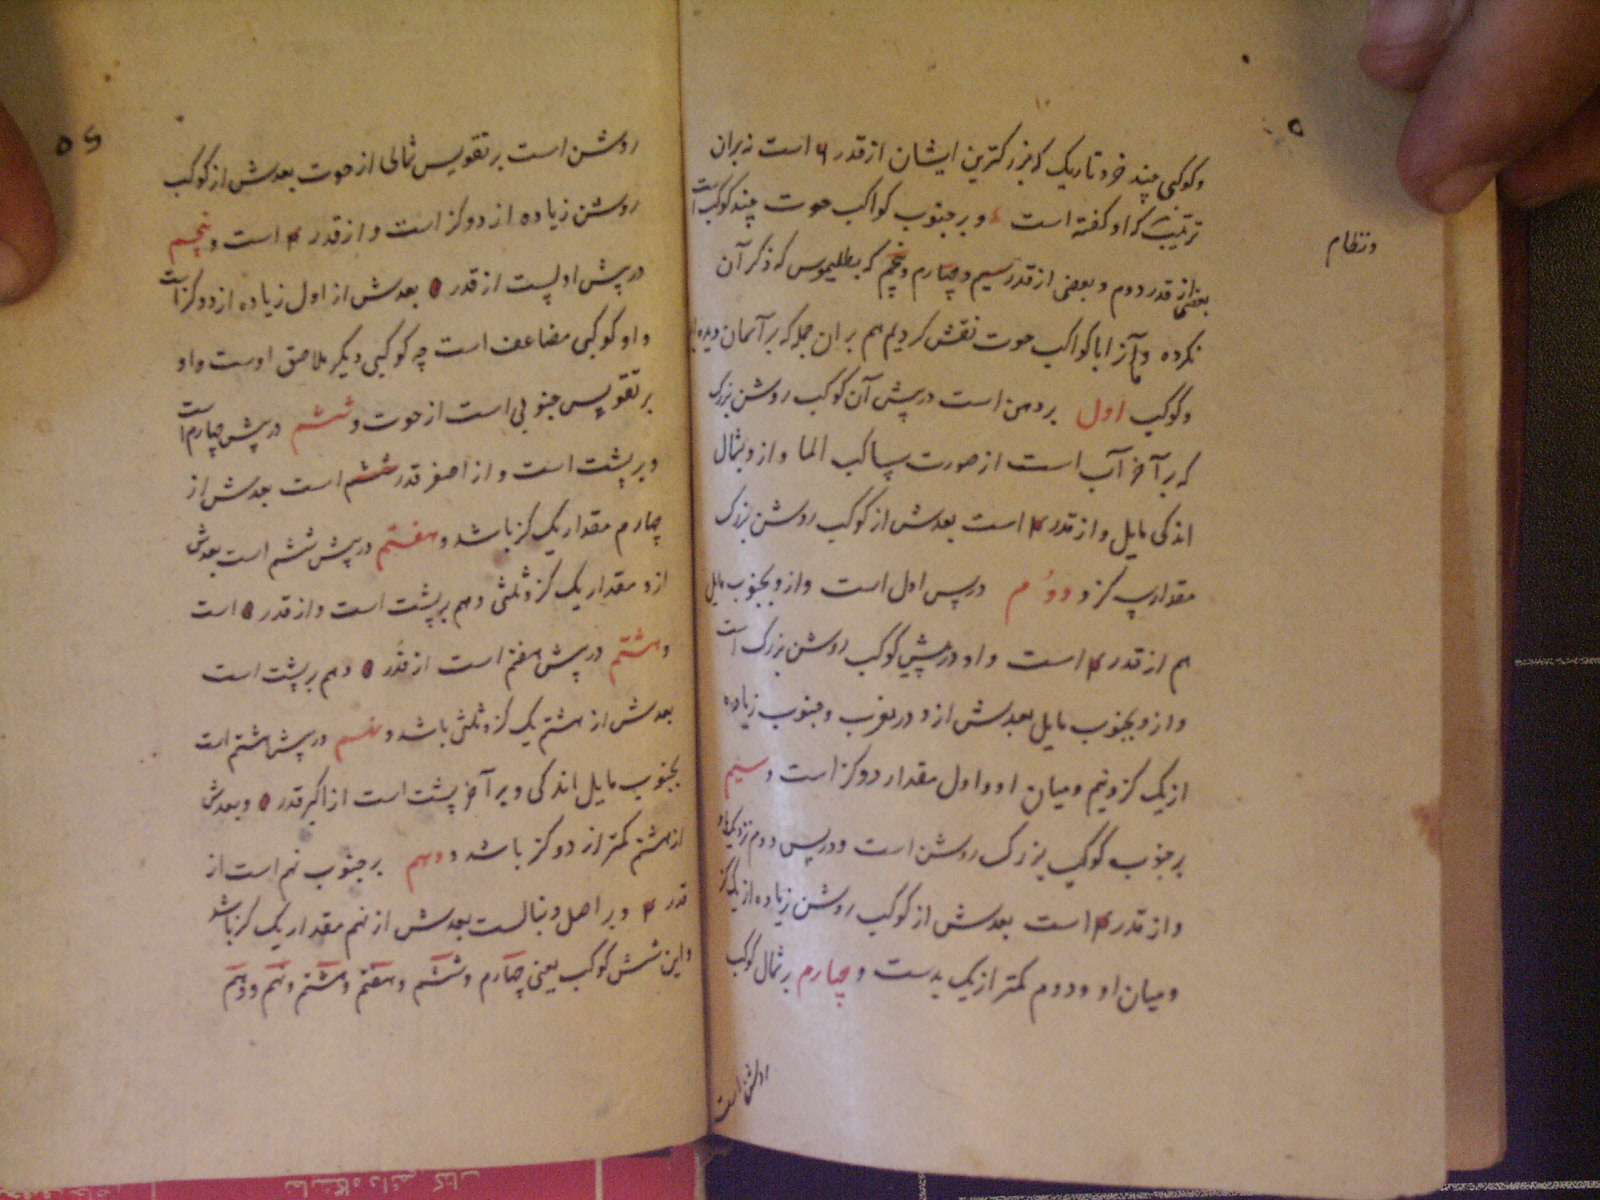 وکوکبی چند خرد تاریک که بزرکترین ایشان از قدر ۶ است نه بران
ترتیب که او کفته است و بر جنوب کواکب حوت چند کوکب است
ونظام
بعضی از قدر دوم و بعضی از قدر سیم و چهارم و پنجم که بطلیموس که ذکر آن
نکرده و ما آنرا با کواکب حوت نقش کردیم هم بران جمله که بر آسمان دیده
وکوکب اول بر دهن است در پیش آن کوکب روشن بزرک
که بر آخر آب است از صورت ساکب الما و ازو بشمال
اندکی مایل و از قدر ۴ است بعدش از کوکب روشن بزرک
مقدار سه کز و دوم در پس اول است و ازو بجنوب مایل
هم از قدر ۴ است و او در پیش کوکب روشن بزرک است
و ازو بجنوب مایل بعدش ازو در مغرب و جنوب زیاده
از یک کز و نیم و میان او و اول مقدار دو کز است و سیم
بر جنوب کوکب بزرک روشن است و در پس دوم نزدیک
و از قدر ۴ است بعدش از کوکب روشن زیاده از یک کز
و میان او و دوم کمتر از یک بدست و چهارم بر شمال کوکب
روشن است
روشن است بر تقویس شمالی از حوت بعدش از کوکب
روشن زیاده از دو کز است و از قدر ۴ است و پنجم
در پیش اولست از قدر ۵ بعدش از اول زیاده از دو کز است
و او کوکبی مضاعف است چه کوکبی دیکر ملاصق اوست و او
بر تقویس جنوبی است از حوت و ششم در پیش چهارم است
و بر پشت است و از اصغر قدر ششم است بعدش از
چهارم مقدار یک کز باشد و هفتم در پیش ششم است بعدش
ازو مقدار یک کز و ثلثی و هم بر پشت است و از قدر ۵ است
و هشتم در پیش هفتم است از قدر ۵ و هم بر پشت است
بعدش از هشتم یک کز و ثلثی باشد و نهم در پیش هشتم است
بجنوب مایل اندکی و بر آخر پشت است از اکبر قدر ۵ و بعدش
از هشتم کمتر از دو کز باشد و دهم بر جنوب نهم است از
قدر ۴ و بر اصل دنبالست بعدش از نهم مقدار یک کز باشد
و این شش کوکب یعنی چهارم و ششم و هفتم و هشتم و نهم و دهم